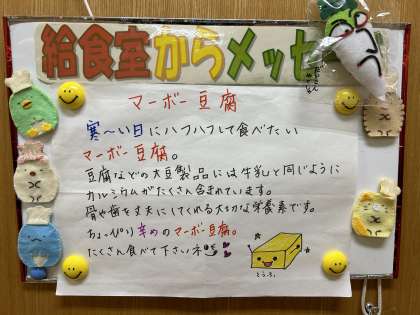 給食室からメッセ
マーボー豆腐
寒〜い日にハフハフして食べたい
マーボー豆腐。
豆腐などの大豆製品には牛乳と同じように
カルシウムがたくさん含まれています。
骨や歯を丈夫にしてくれる大切な栄養素です。
ちょっぴり辛めのマーボー豆腐。
たくさん食べて下さいネ
とうふ